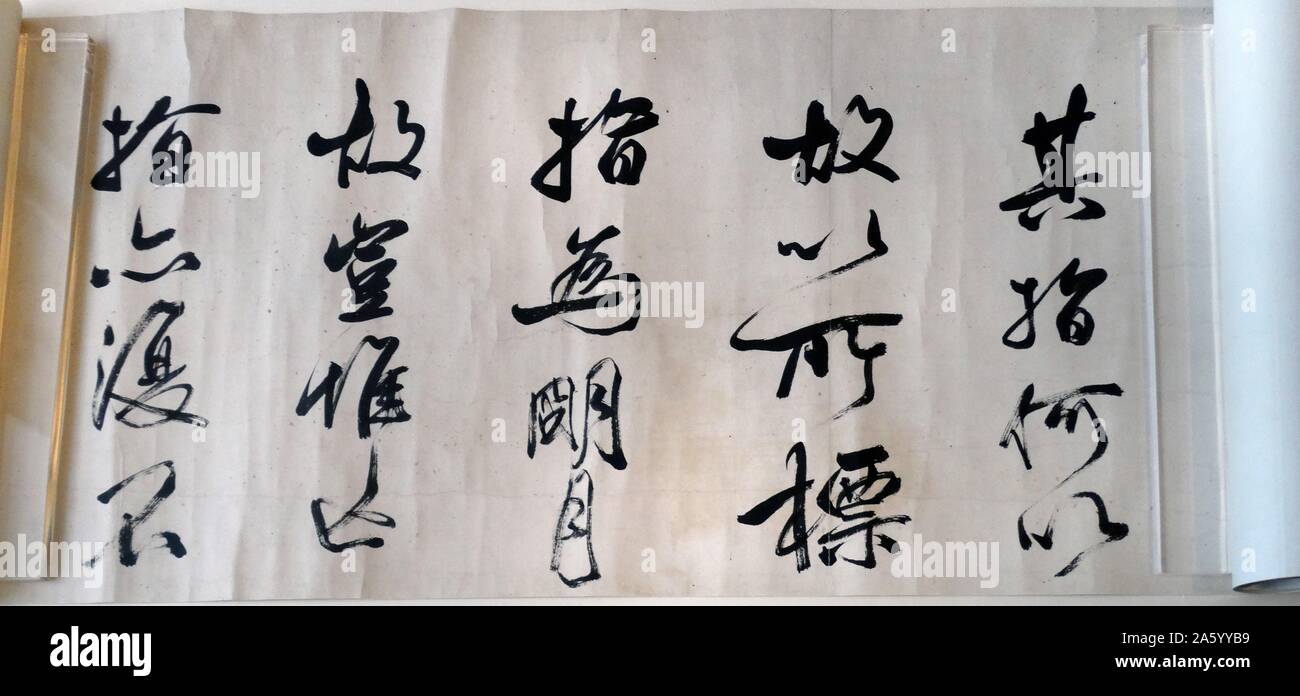 其指何以
故以所標
指為明月
故豈惟亡
指亦復不
alamy
Image ID: 2A5YYB9
www.alamy.com